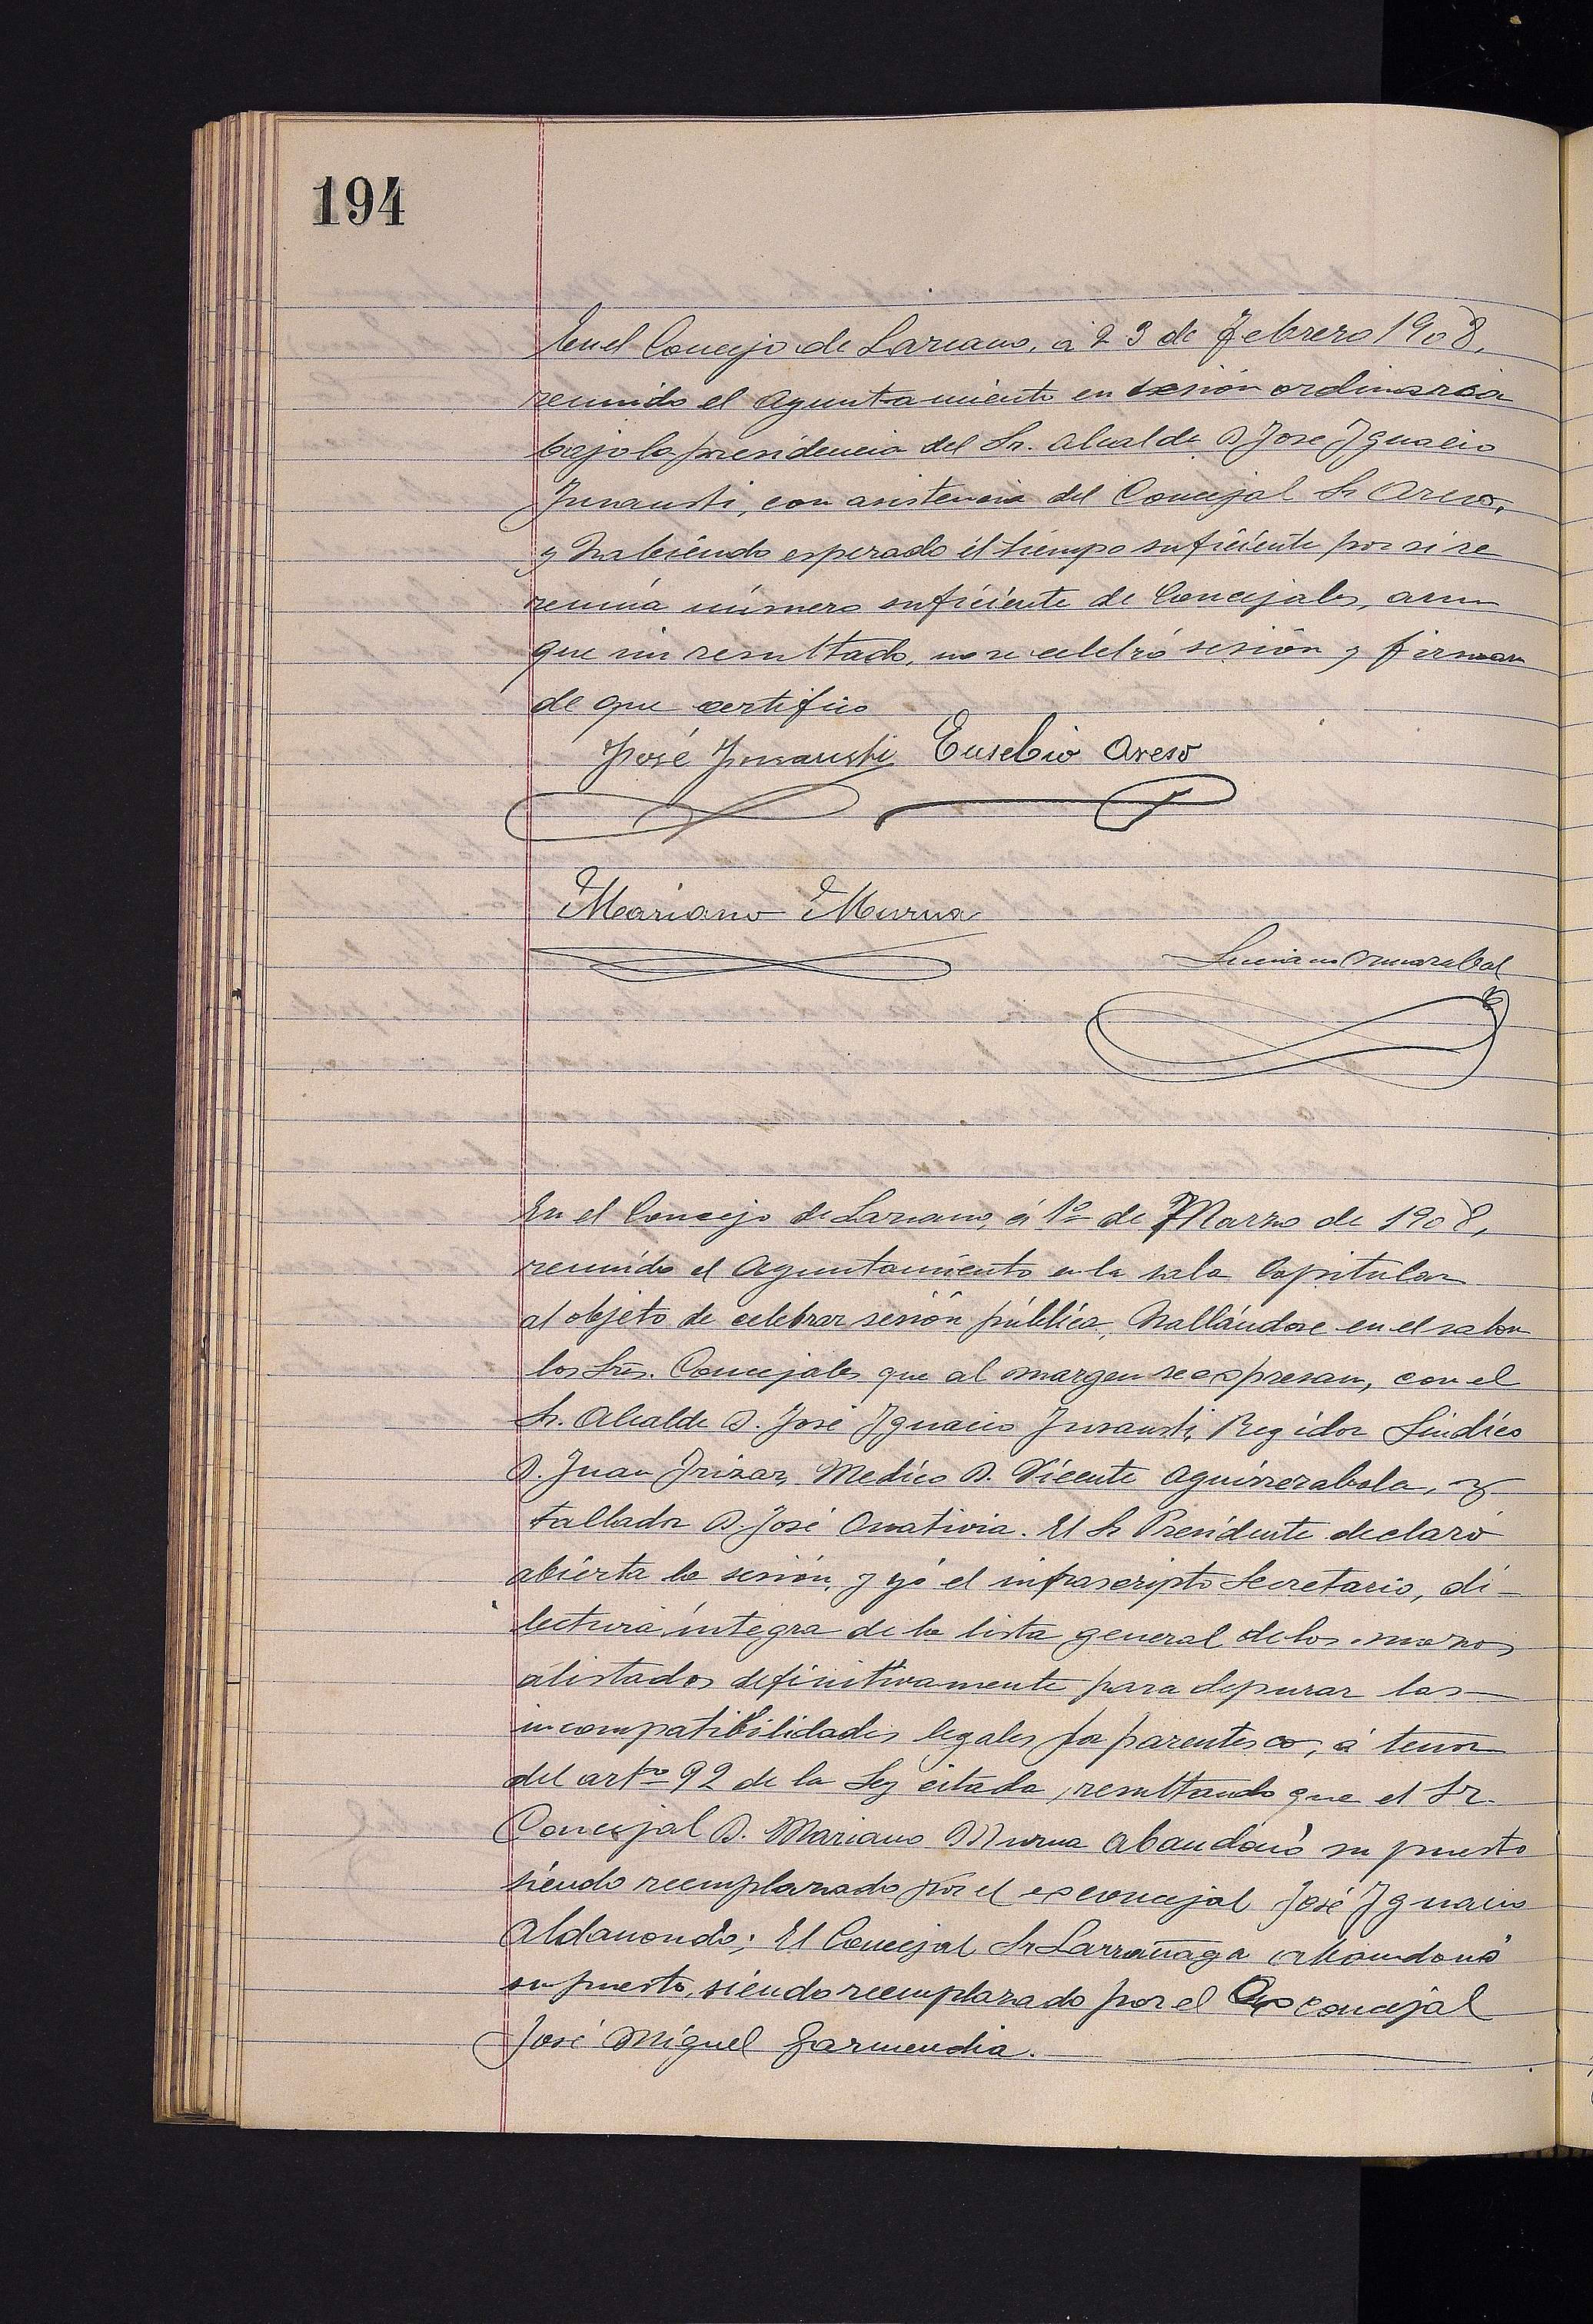 194
En el Concejo de Lazcano, á 23 de Febrero 1908,
reunido el Ayuntamiento en sesión ordinaria
bajo la presidencia del Sr. Alcalde D José Ignacio
Insausti, con asistencia del Concejal Sr Areso,
y habiendo esperado el tiempo suficiente por si se
reunía número suficiente de Concejales, aun
que sin resultado, no se celebró sesión y firman
de que certifico
José Insausti Eusebio Areso
Mariano Murua
Luciano
En el Concejo de Lazcano, á 1º de Marzo de 1908,
reunido el Ayuntamiento en la sala Capitular
al objeto de celebrar sesión pública, hallándose en el salon
los Sres. Concejales que al margen se expresan, con el
Sr. Alcalde D. José Ignacio Insausti, Regidor Síndico
D. Juan Irizar, Medico D. Vicente Aguirrezabala, y
tallador D. José Oñativia. El Sr Presidente declaró
abierta la sesión, y yó el infrascripto Secretario, dí
lectura íntegra de la lista general de los mozos
alistados definitivamente para depurar las
incompatibilidades legales por parentesco, á tenor
del artº 92 de la Ley citada, resultando que el Sr.
Concejal D. Mariano Murua abandonó su puesto
siendo reemplazado por el exconcejal José Ignacio
Aldanondo; El Concejal Sr Larrañaga abandonó
su puesto, siendo reemplazado por el Exconcejal
José Miguel Garmendia.